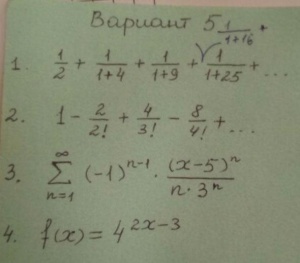 Вариант 5 1/(1+16) +
1. 1/2 + 1/(1+4) + 1/(1+9) + 1/(1+25) + ...
2. 1 - 2/2! + 4/3! - 8/4! + ...
3. ∑_{n=1}^{∞} (-1)^{n-1} · (x-5)^n/(n·3^n)
4. f(x) = 4^{2x-3}